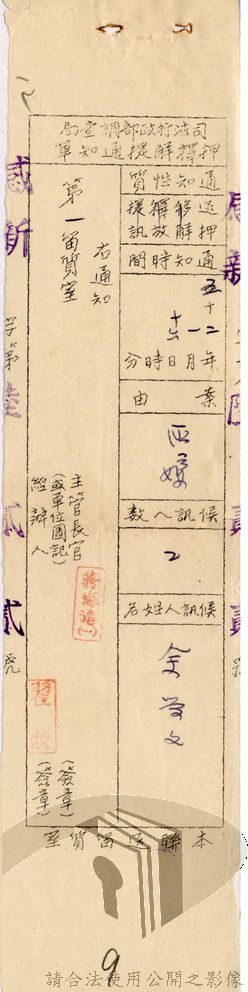 司法行政部調查局
押擇解提通知單
通知性質
送押
移解
釋放
提訊
通知時間
五十二年十一月十六日時分
案由
匪嫌
候訊人數
乙
候訊人姓名
余
文
右通知
第一留質室
主管長官
(或單位圖記)
經辦人
(簽章)
(簽章)
本聯送留質室
感新
字第
陸
貳
貳
號
9
請合法使用公開之影像